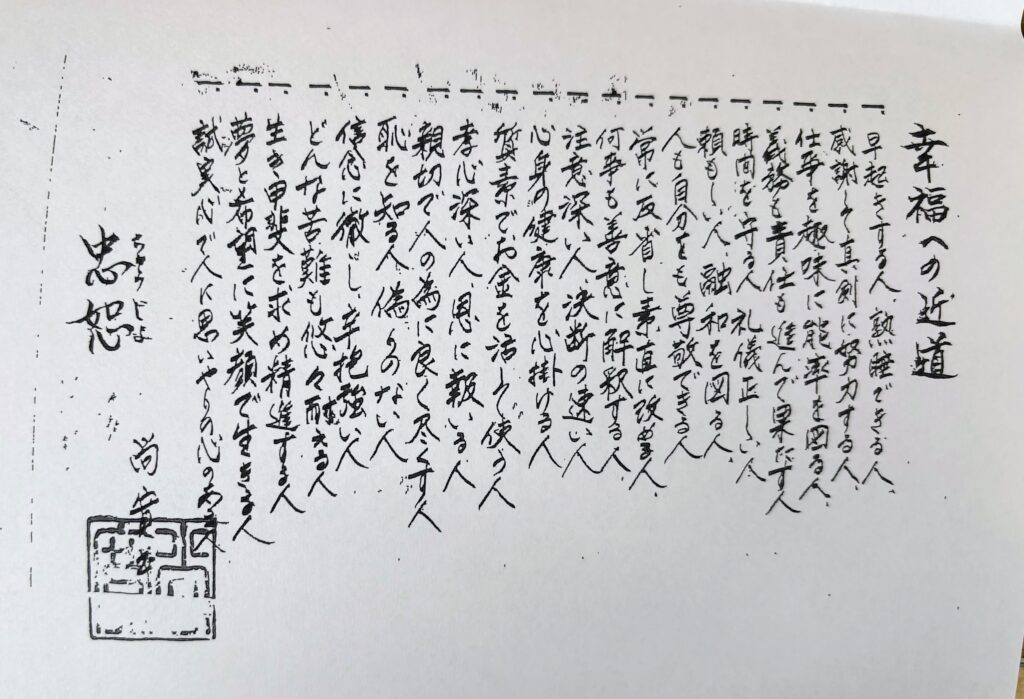 幸福への近道
一、早起きする人、熟睡できる人、
一、感謝して真剣に努力する人、
一、仕事を趣味に能率を図る人、
一、義務も責任も進んで果たす人
一、時間を守る人 礼儀正しい人
一、頼もしい人、融和を図る人、
一、人も自分をも尊敬できる人
一、常に反省し素直に改める人、
一、何事も善意に解釈する人、
一、注意深い人、決断の速い人
一、心身の健康を心掛ける人
一、質素でお金を活して使う人
一、孝心深い人、恩に報いる人
一、親切で人の為に良く尽くす人
一、恥を知る人 偽りのない人
一、信念に徹し、辛抱強い人
一、どんな苦難も悠々耐える人
一、生き甲斐を求め精進する人
一、夢と希望に笑顔で生きる人
一、誠実心で人に思いやりの心のある人
ちゅうじょ
忠恕
尚